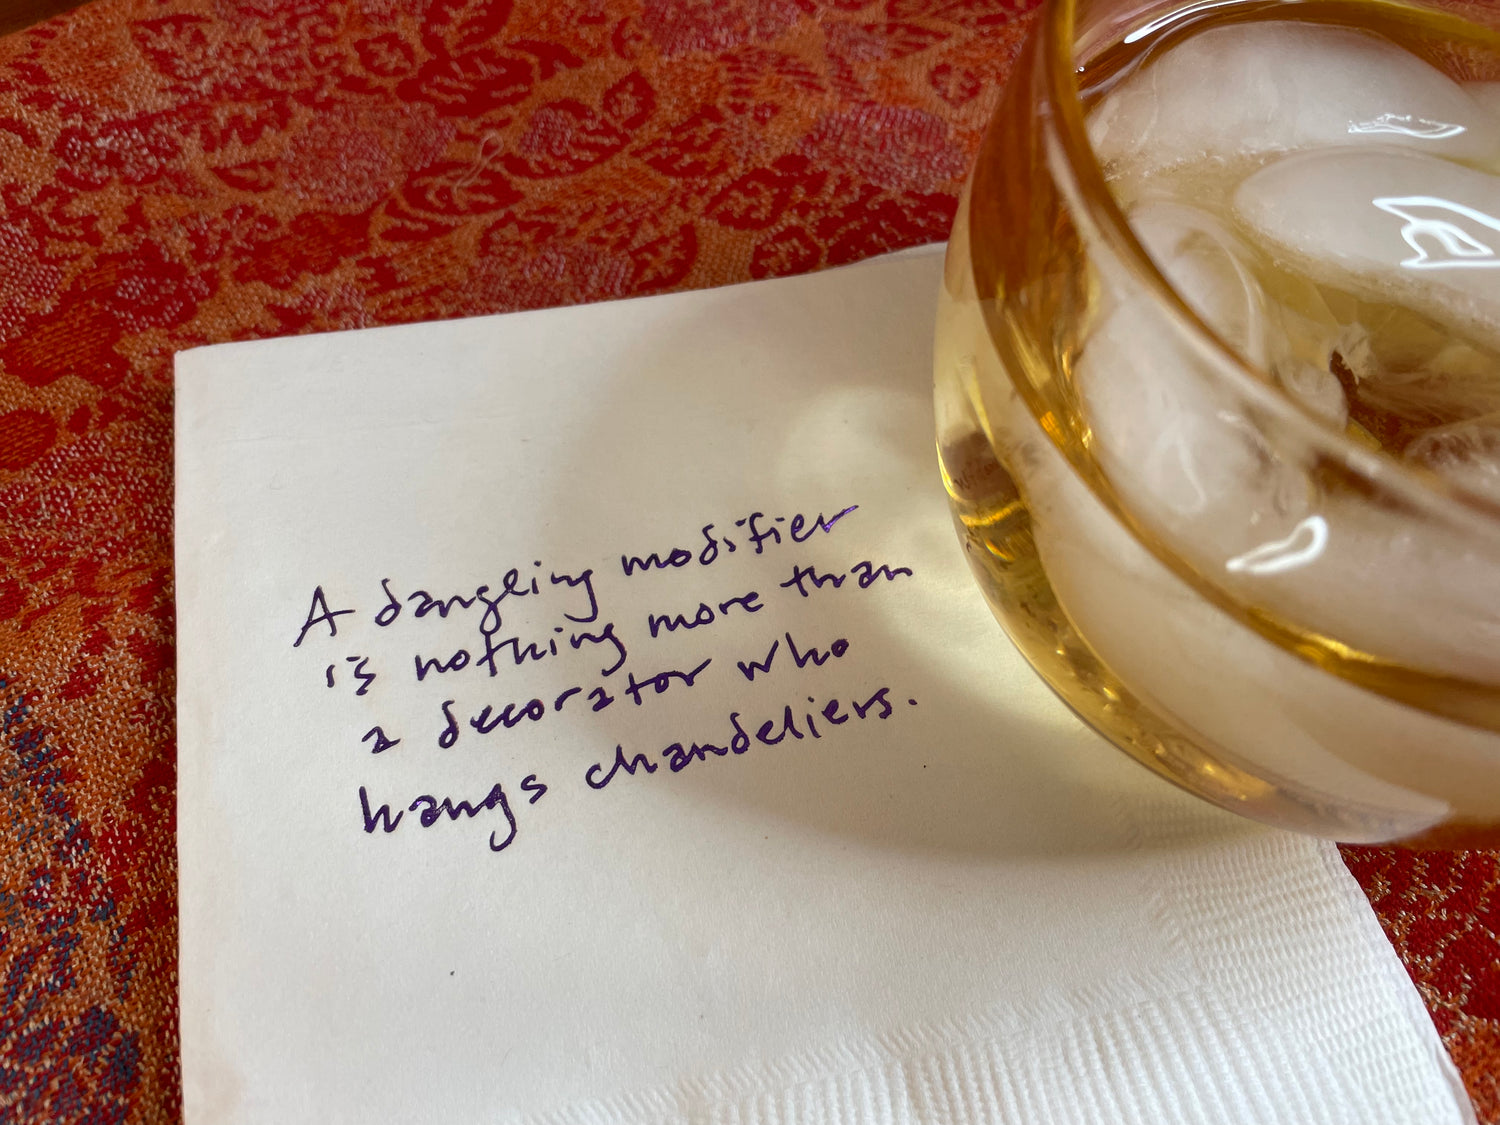 A dangling modifier
is nothing more than
a decorator who
hangs chandeliers.